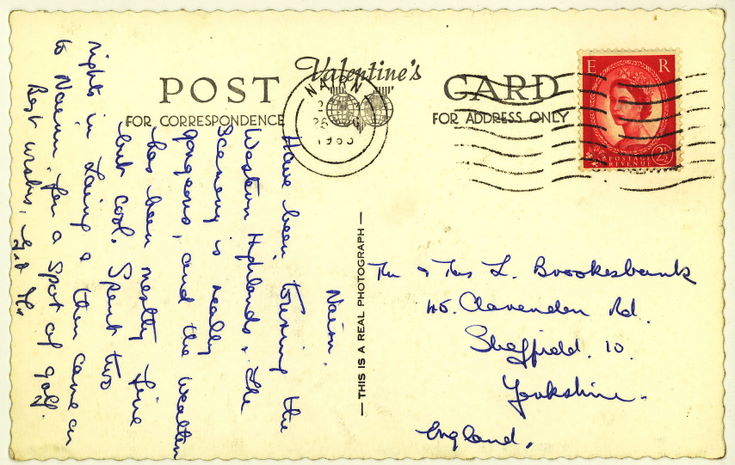 POST Valentine's CARD
FOR CORRESPONDENCE
FOR ADDRESS ONLY
NAIRN
1963
E R
POSTAGE
REVENUE
2½
THIS IS A REAL PHOTOGRAPH
Nairn.
Have been touring the
Western Highlands. The
Scenery is really
gorgeous, and the weather
has been mostly fine
but cool. Spent two
nights in Lairg & then came on
to Nairn for a spot of golf.
Best wishes,
Mr & Mrs L. Brookesbank
45. Clarendon Rd.
Sheffield. 10.
Yorkshire.
England.